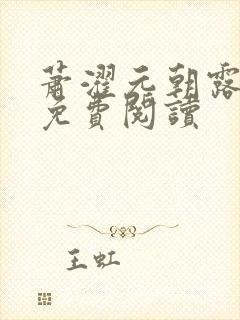 蕭濯元朝露
免費閱讀
王虹